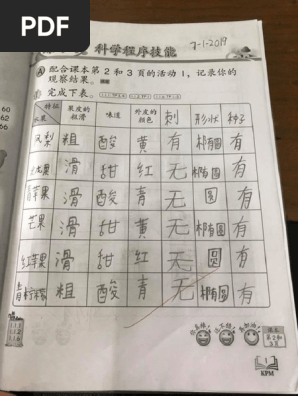 PDF
科学程序技能
7-1-2019
A 配合课本第 2 和 3 页的活动 1，记录你的
观察结果。
完成下表。
特征 水果 果皮的粗滑 味道 外皮的颜色 刺 形状 种子
凤梨 粗 酸 黄 有 椭圆 有
滑 甜 红 无 椭圆 有
青苹果 滑 酸 青 无 圆 有
芒果 滑 甜 黄 无 椭圆 有
红苹果 滑 甜 红 无 圆 有
青柠檬 粗 酸 青 无 椭圆 有
60
62
66
1.1.1
1.1.2
1.1.6
课本
第 2 和
3 页
1
KPM